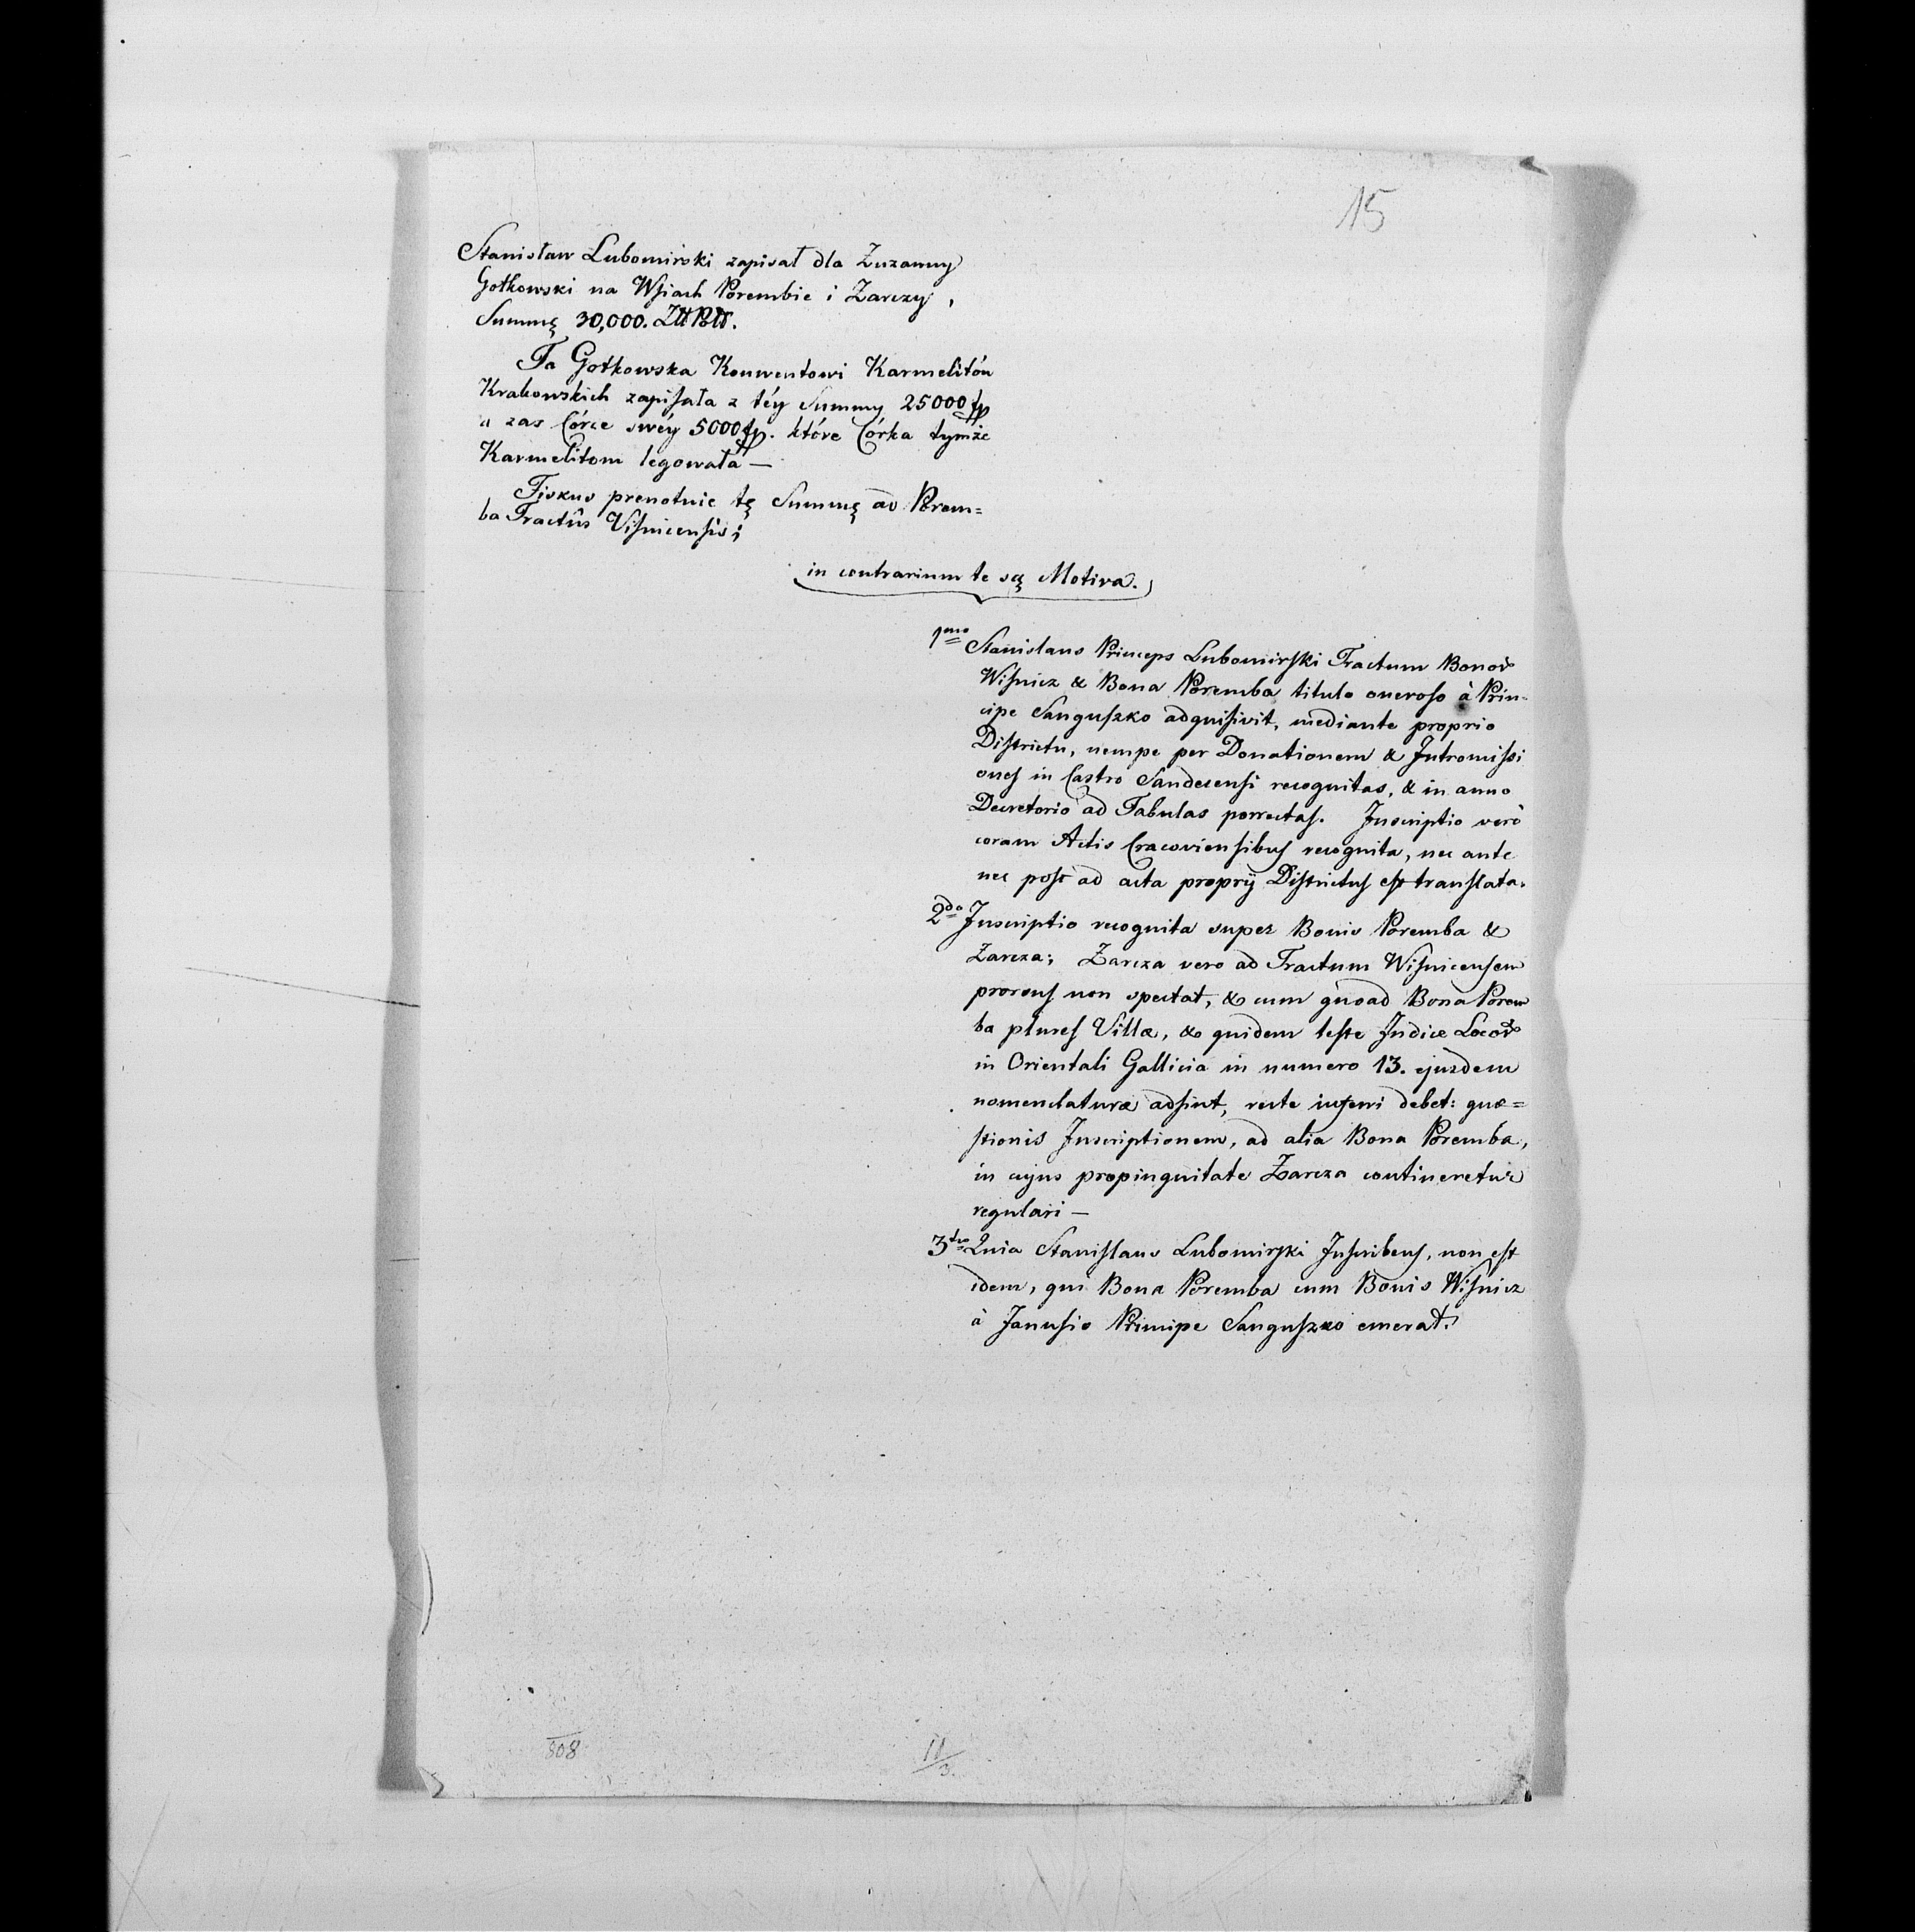 15
Stanisław Lubomirski zapisał dla Zuzanny
Gołkowski na Wsiach Porembie i Zarczy,
Summę 30,000. Złt Pols.
Ta Gołkowska Konwentowi Karmelitów
Krakowskich zapisała z téy Summy 25000 fp
a zas Córce swéy 5000 fp. które Córka tymże
Karmelitom legowała —
Fiskus prenotuie tę Summę ad Porem=
ba Tractûs Visnicensis;
in contrarium te są Motiva.
1mo Stanislaus Princeps Lubomirski Tractum Bonor
Wisnicz & Bona Poremba titulo oneroso à Prin-
cipe Sanguszko adquisivit, mediante proprio
Districtu, nempe per Donationem & Intromissi
ones in Castro Sandecensi recognitas, & in anno
Decretorio ad Tabulas porrectas. Inscriptio verò
coram Actis Cracoviensibus recognita, nec ante
nec post ad acta proprij Districtus est translata.
2do Inscriptio recognita super Bonis Poremba &
Zarcza; Zarcza vero ad Tractum Wisnicensem
prorsus non spectat, & cum quoad Bona Porem
ba plures Villæ, & quidem teste Indice Locor
in Orientali Gallicia in numero 13. ejusdem
nomenclaturæ adsint, recte inferri debet: quæ=
stionis Inscriptionem, ad alia Bona Poremba,
in cujus propinquitate Zarcza contineretur
regulari —
3tio Quia Stanislaus Lubomirski Inscribens, non est
idem, qui Bona Poremba cum Bonis Wisnicz
à Janusio Principe Sanguszko emerat.
808
11/3.